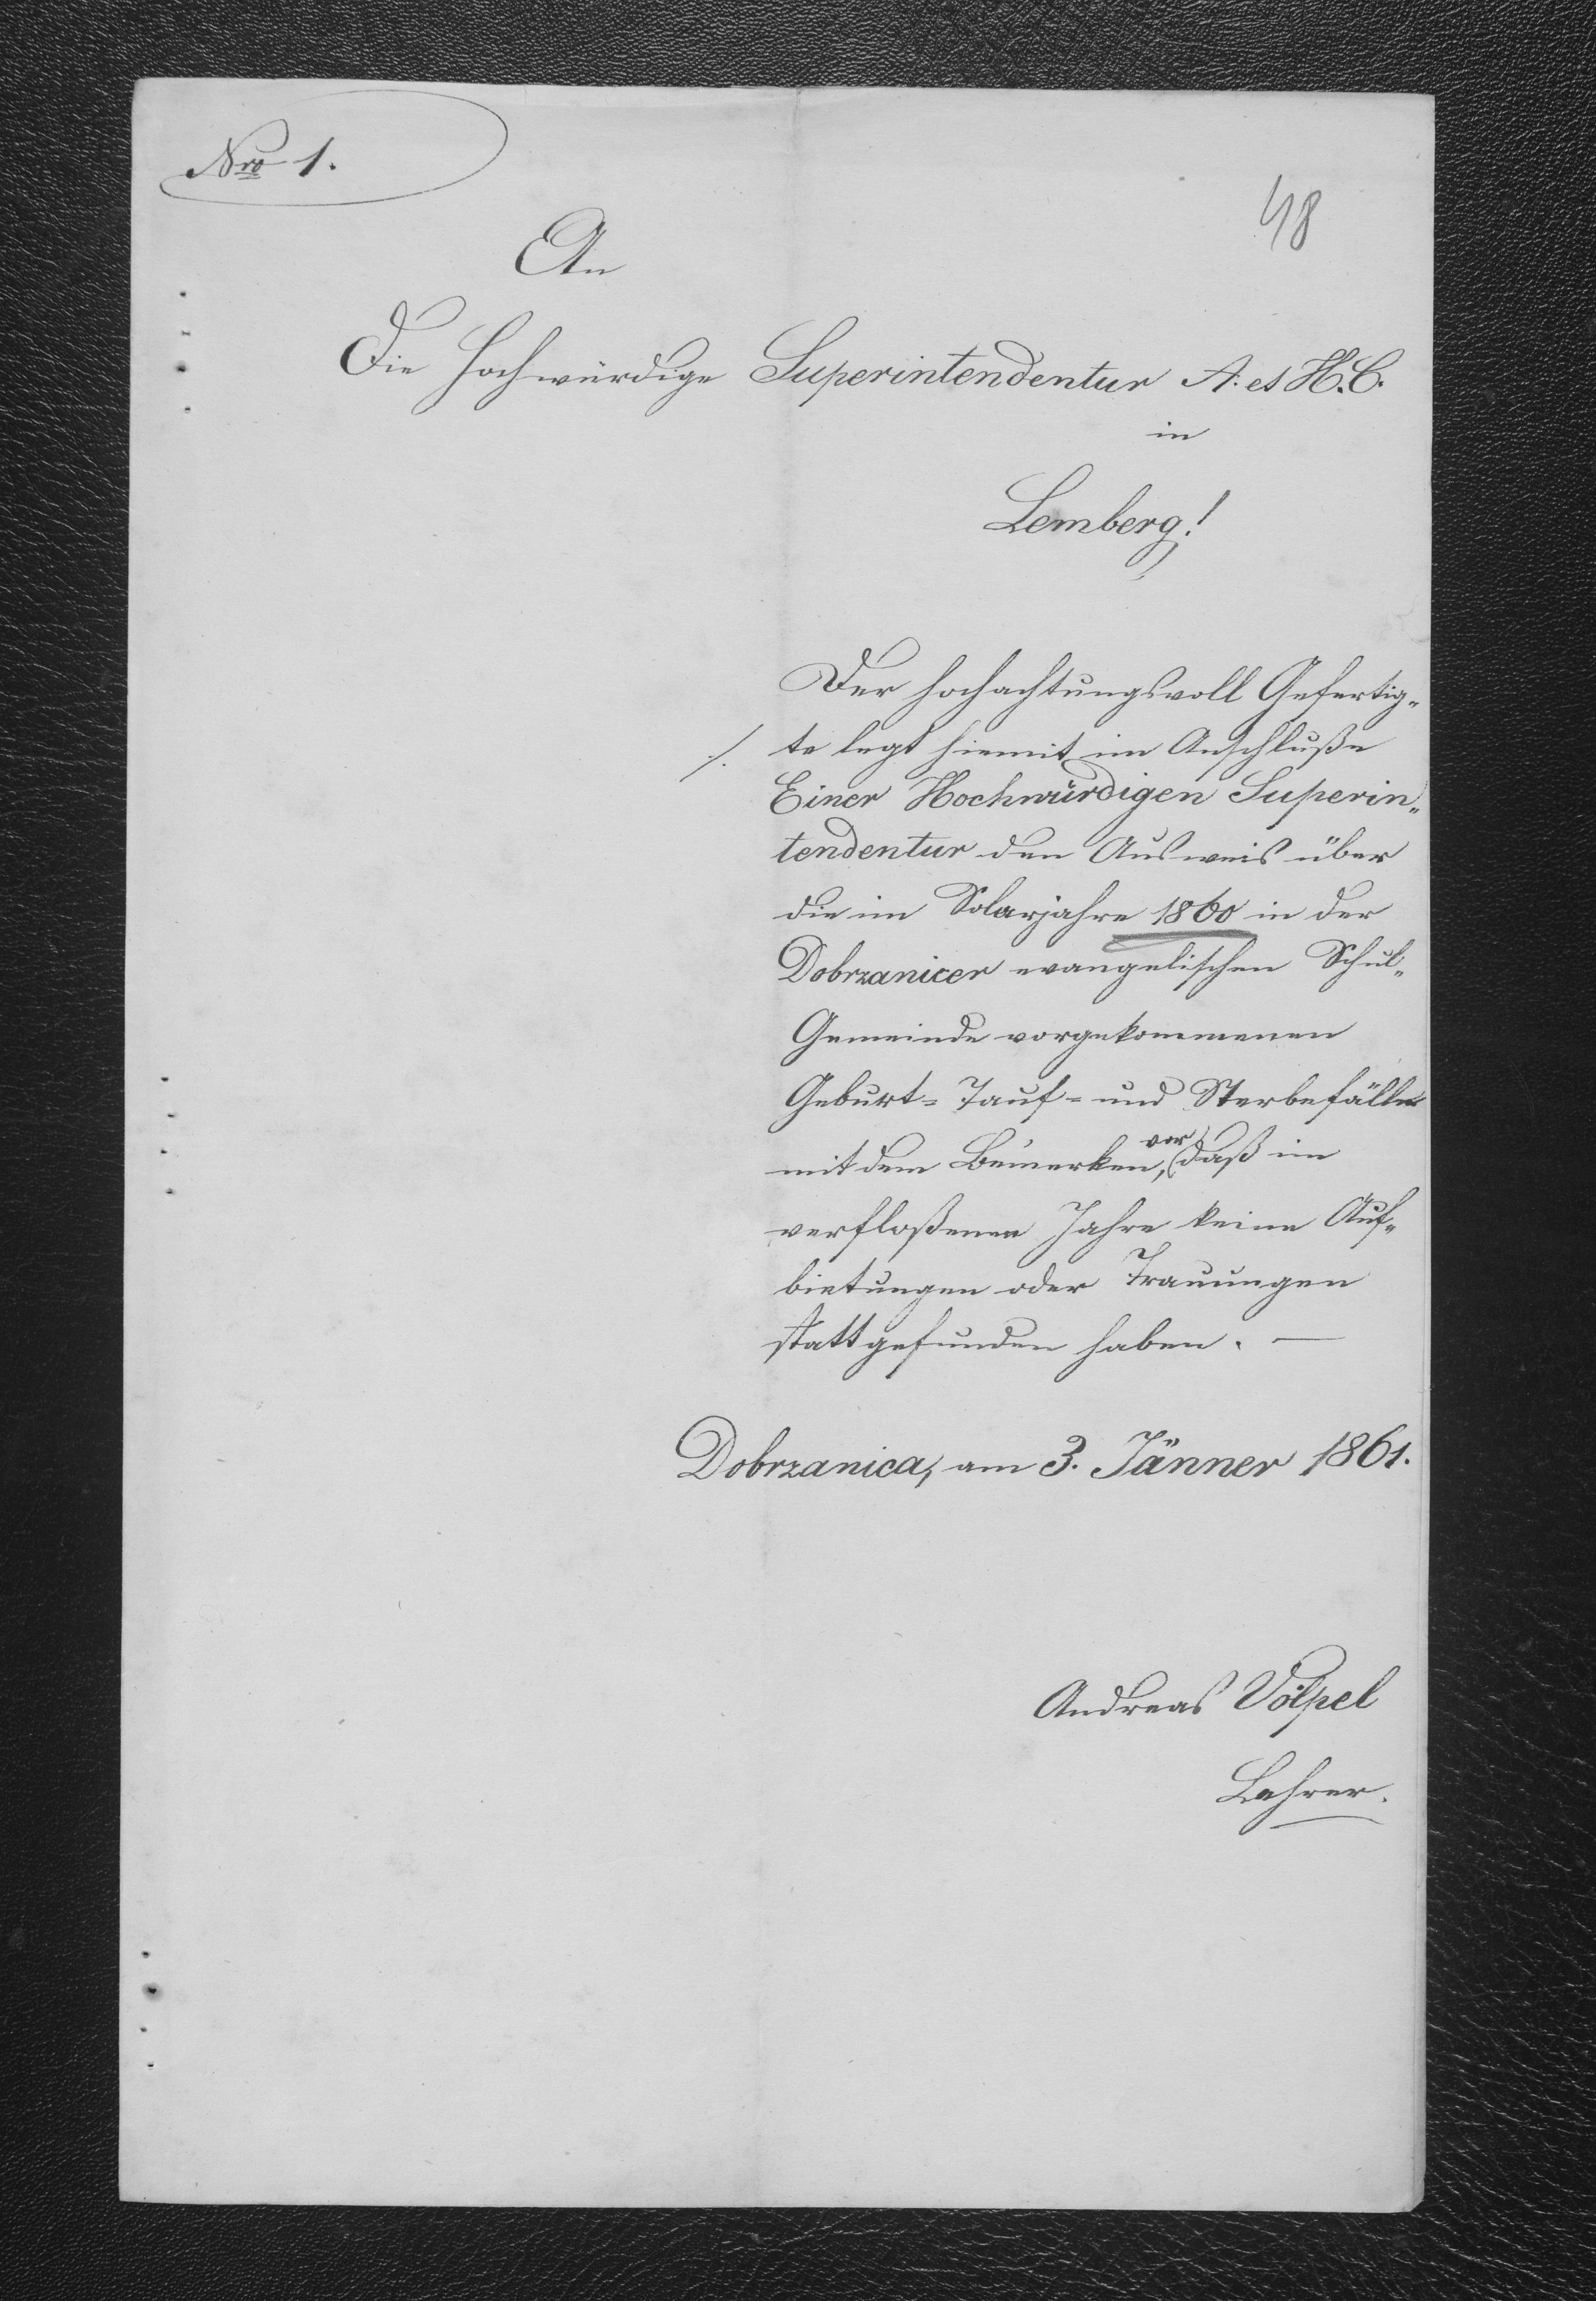 Nro 1.
48
An
Die Hochwürdige Superintendentur A. et H.C.
in
Lemberg!
Der hochachtungsvoll Gefertig„
./. te legt hiemit im Anschluße
Einer Hochwürdigen Superin„
tendentur den Ausweis über
die im Solarjahre 1860 in der
Dobrzanicer evangelischen Schul„
Gemeinde vorgekommenen
Geburt= Tauf= und Sterbefälle
vor
mit dem Bemerken, daß im
verfloßenen Jahre keine Auf„
bietungen oder Trauungen
stattgefunden haben. —
Dobrzanica, am 3. Jänner 1861.
Andreas Völpel
Lehrer.